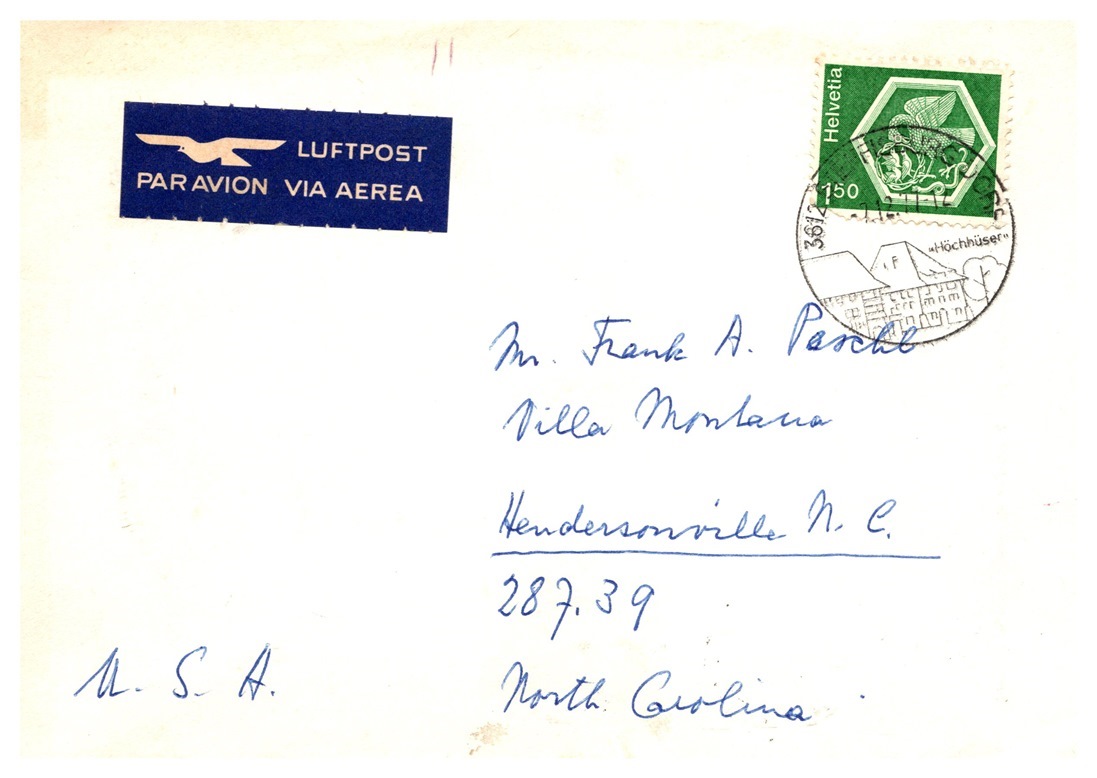 LUFTPOST
PAR AVION VIA AEREA
Helvetia
150
3612
"Höchhüser"
Mr. Frank A. Paschl
Villa Montana
Hendersonville N. C.
287.39
North Carolina
U. S. A.